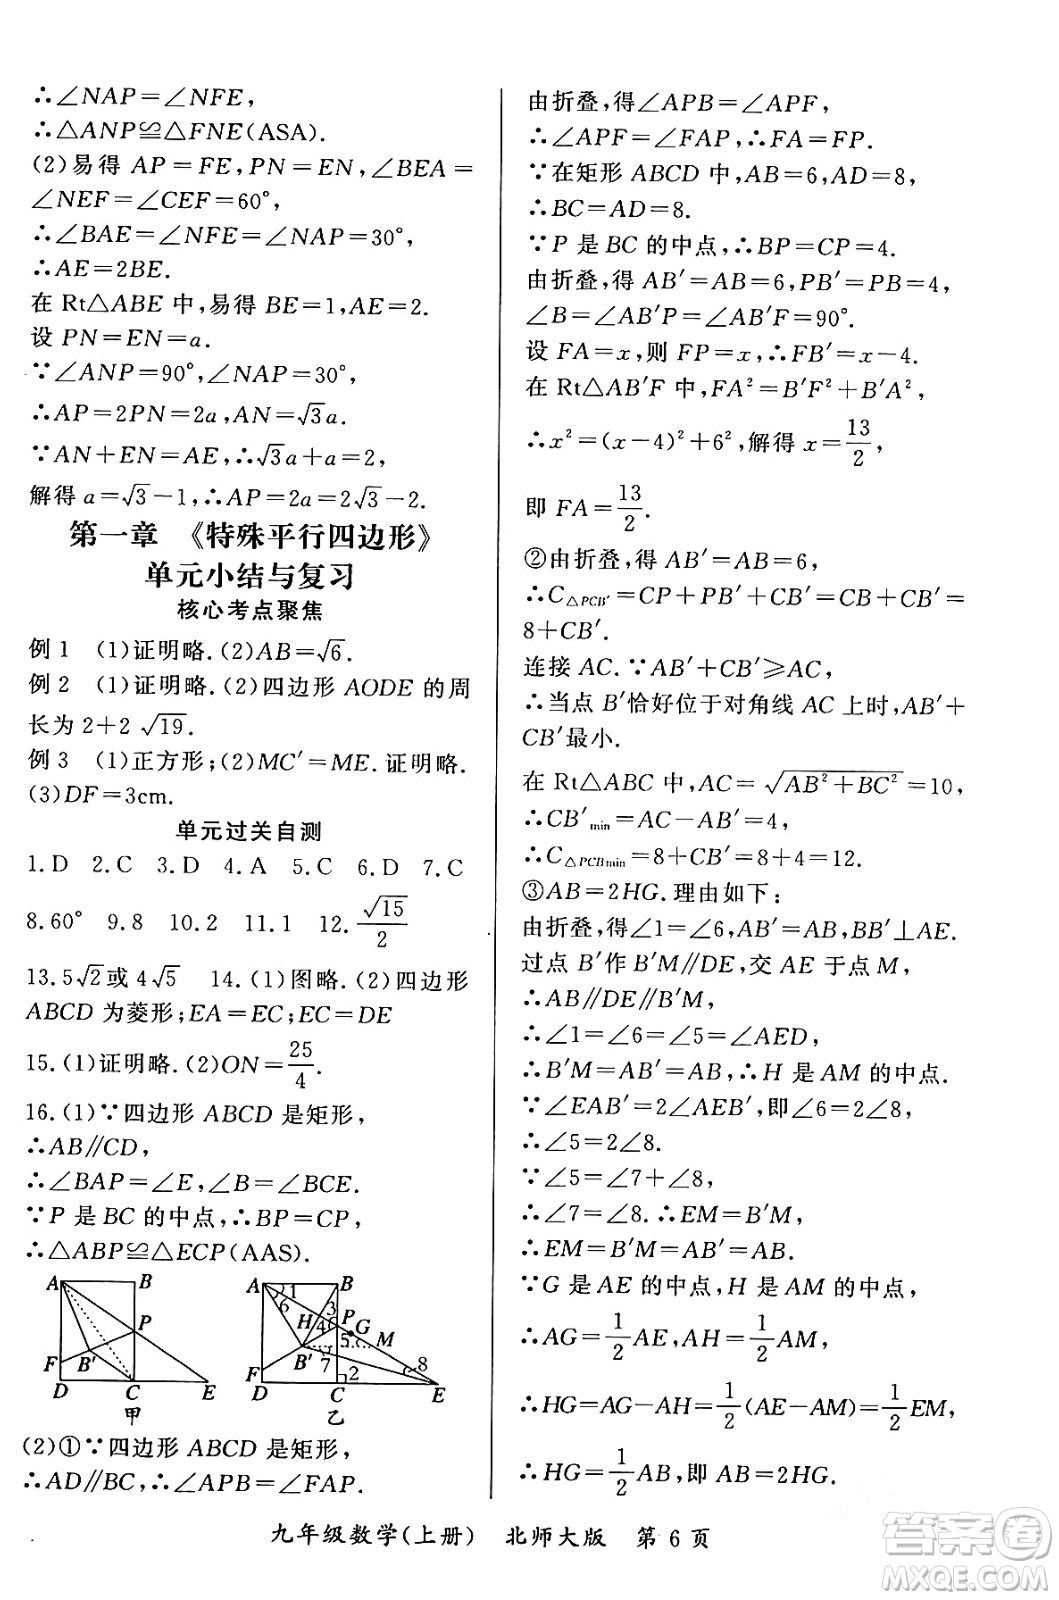 ∴∠NAP=∠NFE,
∴△ANP≌△FNE(ASA).
(2)易得 AP=FE,PN=EN,∠BEA=
∠NEF=∠CEF=60°,
∴∠BAE=∠NFE=∠NAP=30°,
∴AE=2BE.
在 Rt△ABE 中,易得 BE=1,AE=2.
设 PN=EN=a.
∵∠ANP=90°,∠NAP=30°,
∴AP=2PN=2a,AN=√3a.
∵AN+EN=AE,∴√3a+a=2,
解得 a=√3-1,∴AP=2a=2√3-2.
第一章 《特殊平行四边形》
单元小结与复习
核心考点聚焦
例 1 (1)证明略.(2)AB=√6.
例 2 (1)证明略.(2)四边形 AODE 的周
长为 2+2√19.
例 3 (1)正方形;(2)MC′=ME.证明略.
(3)DF=3cm.
单元过关自测
1.D 2.C 3.D 4.A 5.C 6.D 7.C
8.60° 9.8 10.2 11.1 12.√15/2
13.5√2或4√5 14.(1)图略.(2)四边形
ABCD 为菱形;EA=EC;EC=DE
15.(1)证明略.(2)ON=25/4.
16.(1)∵四边形 ABCD 是矩形,
∴AB∥CD,
∴∠BAP=∠E,∠B=∠BCE.
∵P 是 BC 的中点,∴BP=CP,
∴△ABP≌△ECP(AAS).
A B P F B′ D C E 甲
A B 1 6 3 H 4 P G 5 M B′ 7 8 F 2 D C E 乙
(2)①∵四边形 ABCD 是矩形,
∴AD∥BC,∴∠APB=∠FAP.
由折叠,得∠APB=∠APF,
∴∠APF=∠FAP,∴FA=FP.
∵在矩形 ABCD 中,AB=6,AD=8,
∴BC=AD=8.
∵P 是 BC 的中点,∴BP=CP=4.
由折叠,得 AB′=AB=6,PB′=PB=4,
∠B=∠AB′P=∠AB′F=90°.
设 FA=x,则 FP=x,∴FB′=x-4.
在 Rt△AB′F 中,FA²=B′F²+B′A²,
∴x²=(x-4)²+6²,解得 x=13/2,
即 FA=13/2.
②由折叠,得 AB′=AB=6,PB′=PB=4,
∴C△PCB′=CP+PB′+CB′=CB+CB′=
8+CB′.
连接 AC.∵AB′+CB′≥AC,
∴当点 B′恰好位于对角线 AC 上时,AB′+
CB′最小.
在 Rt△ABC 中,AC=√(AB²+BC²)=10,
∴CB′min=AC-AB′=4,
∴C△PCBmin=8+CB′=8+4=12.
③AB=2HG.理由如下:
由折叠,得∠1=∠6,AB′=AB,BB′⊥AE.
过点 B′作 B′M∥DE,交 AE 于点 M,
∴AB∥DE∥B′M,
∴∠1=∠6=∠5=∠AED,
∴B′M=AB′=AB,∴H 是 AM 的中点.
∵∠EAB′=2∠AEB′,即∠6=2∠8,
∴∠5=2∠8.
∵∠5=∠7+∠8,
∴∠7=∠8.∴EM=B′M,
∴EM=B′M=AB′=AB.
∵G 是 AE 的中点,H 是 AM 的中点,
∴AG=1/2AE,AH=1/2AM,
∴HG=AG-AH=1/2(AE-AM)=1/2EM,
∴HG=1/2AB,即 AB=2HG.
九年级数学(上册) 北师大版 第 6 页
答案圈
MXQE.COM